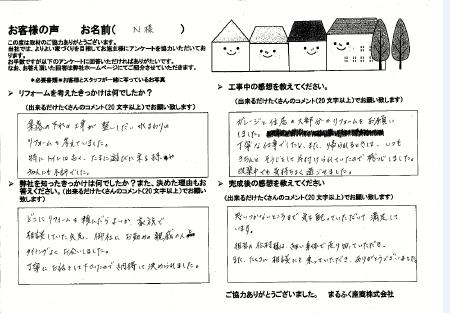 お客様の声　お名前（ N様 ）
この度は取材のご協力ありがとうございます。
当社では、よりよい家づくりを目指してお施主様にアンケートを協力いただいております。
お手数ですが以下のアンケートに回答いただければありがたいです。
なお、お答え頂いた回答は弊社ホームページにてご紹介させていただきます。
＊必要書類＊お客様とスタッフが一緒に写っているお写真
➢ リフォームを考えたきっかけは何でしたか？
（出来るだけたくさんのコメント（20文字以上）でお願い致します）
水まわりの
リフォームを考えていました。
➢ 弊社を知ったきっかけは何でしたか？また、決めた理由もお答えください。（出来るだけたくさんのコメント（20文字以上）でお願い致します）
どこにリフォームを頼んだらよいか 家族で
相談していた矢先、御社にお勤めの親戚の人
タイミングよくお会いしました。
丁寧にお話をして下さったので納得して決められました。
➢ 工事中の感想を教えてください。
（出来るだけたくさんのコメント（20文字以上）でお願い致します）
ガレージと住居の大部分のリフォームをお願い
しました。
丁寧な仕事でした。また、帰られるときは、いつも
きちんとそうじをして片付けられていたので感心しました。
➢ 完成後の感想を教えてください。
（出来るだけたくさんのコメント（20文字以上）でお願い致します）
思いがけないところまで気を配っていただいて満足して
います。
また、たくさん相談にも乗っていただき、ありがとうございました。
ご協力ありがとうございました。　まるふく産商株式会社